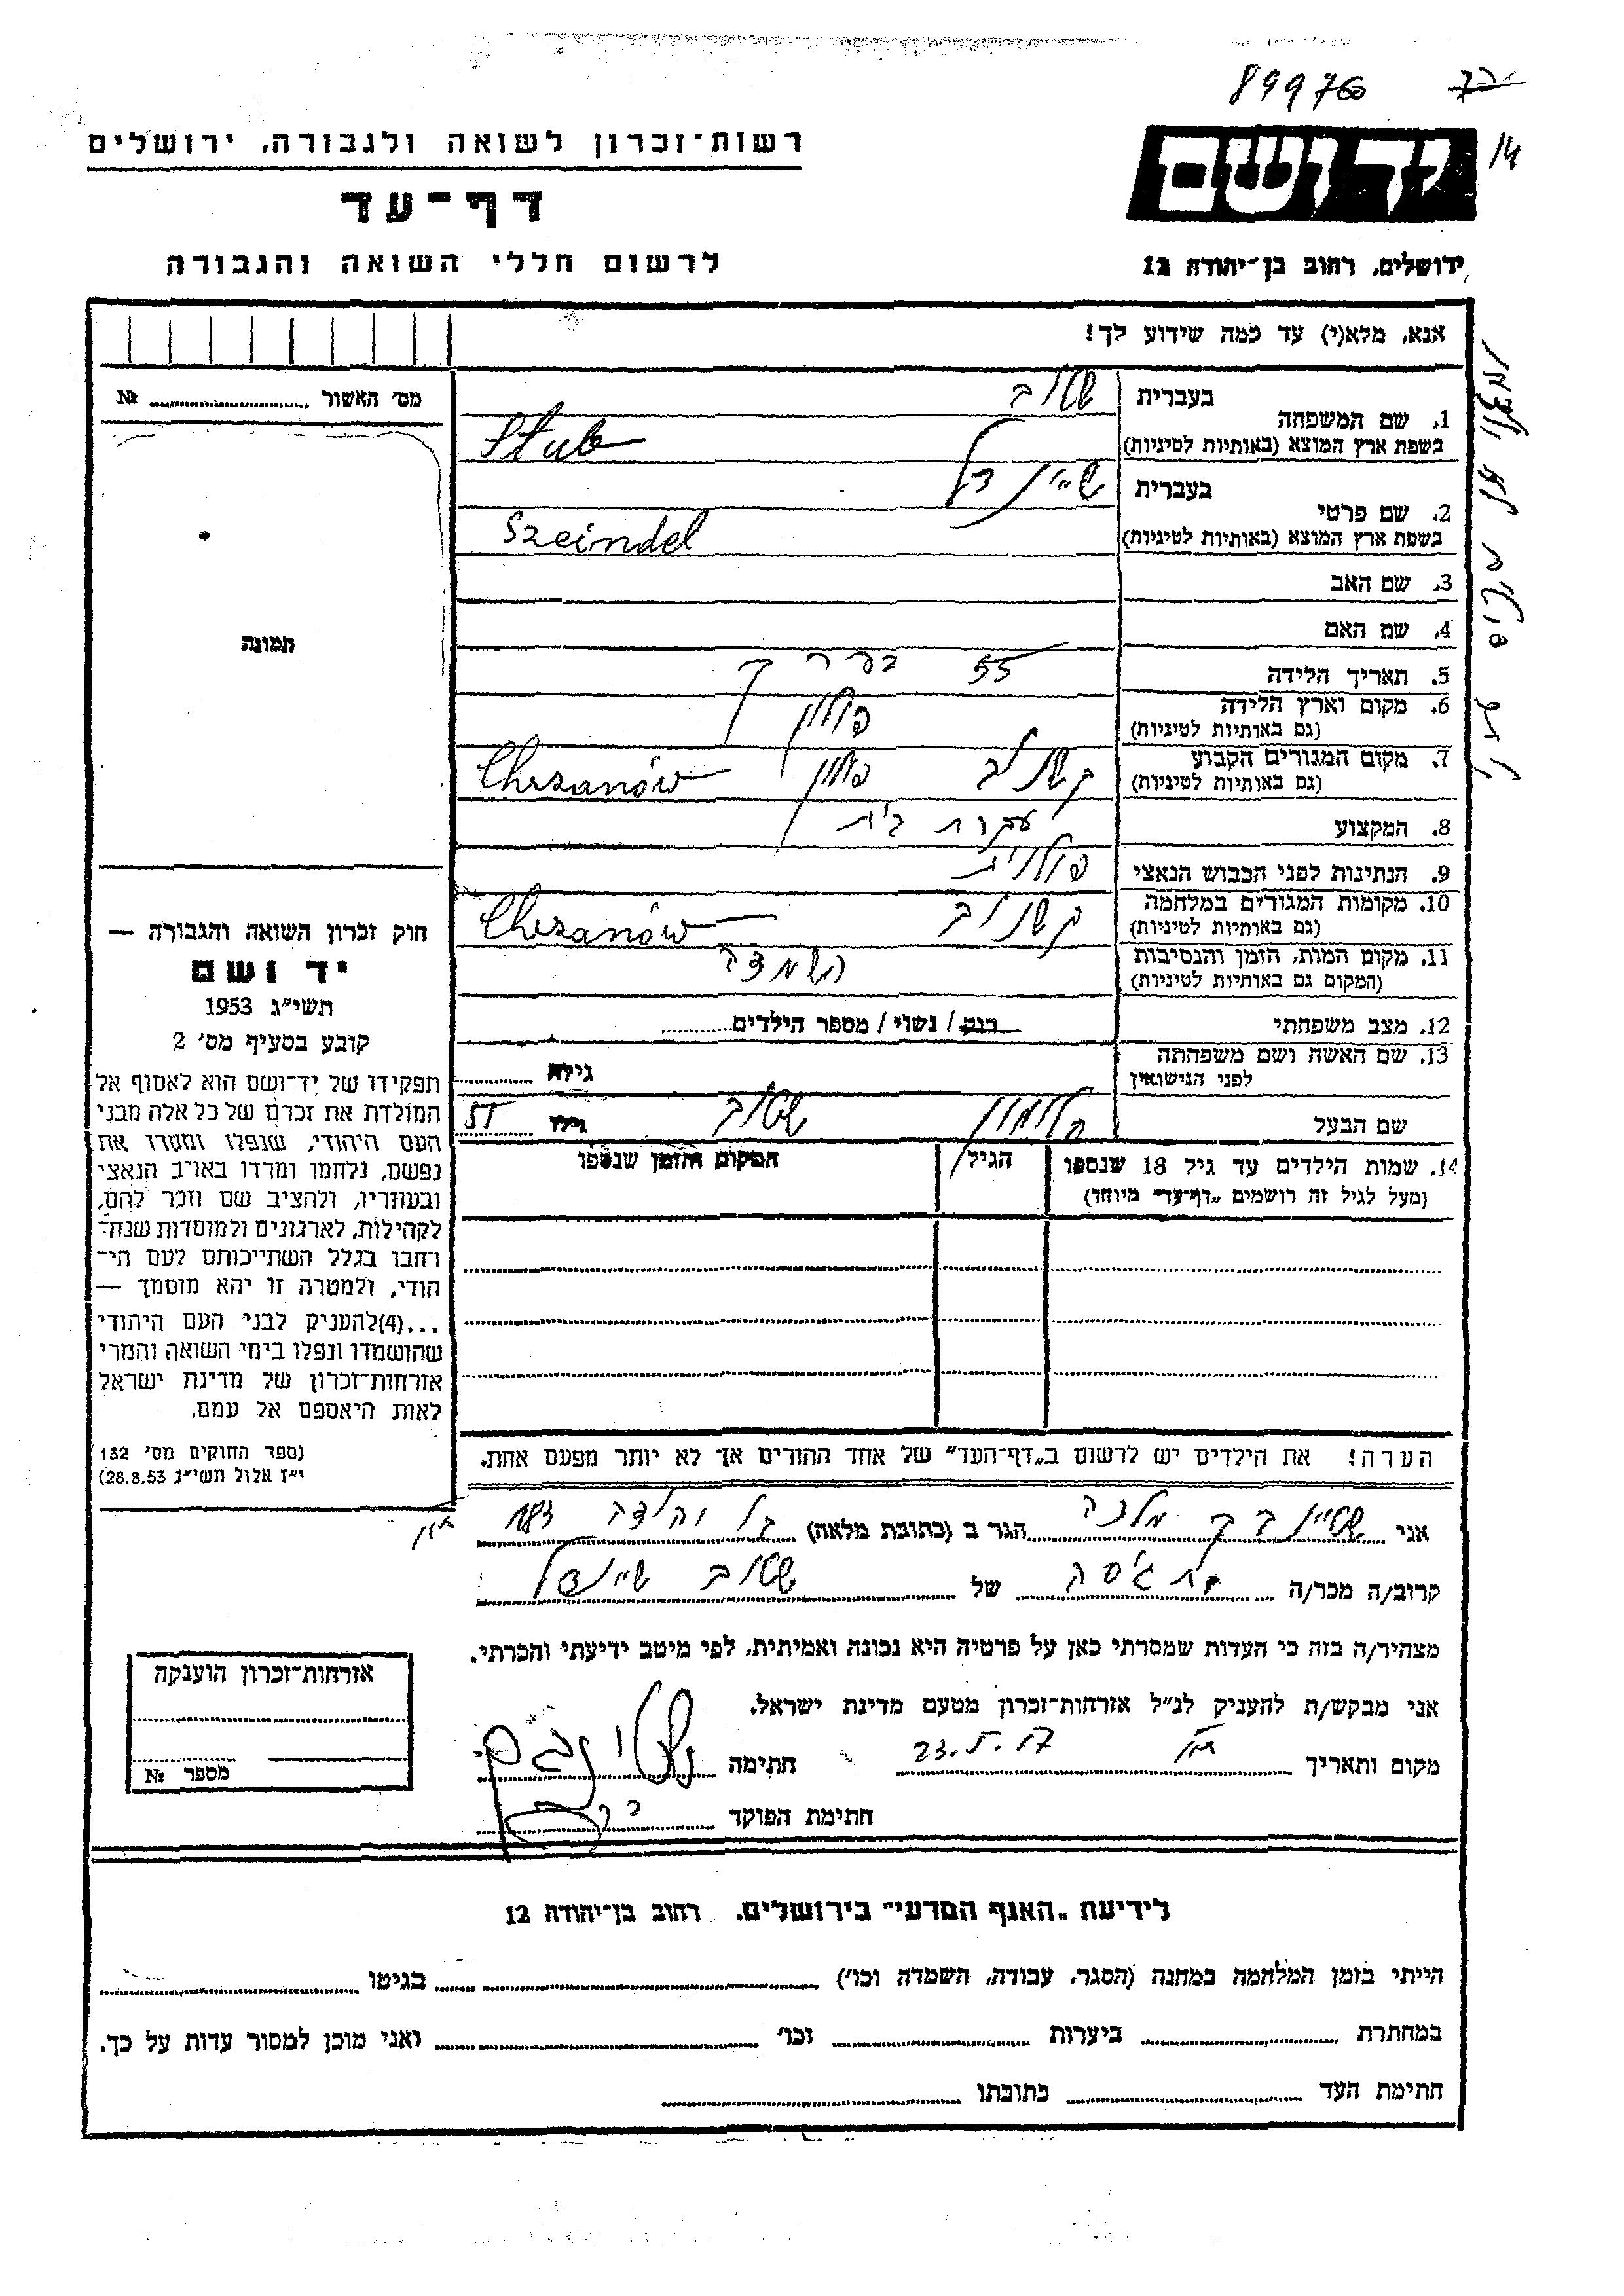 89976
14
רשות־זכרון לשואה ולגבורה, ירושלים
יד ושם
דף־עד
לרשום חללי השואה והגבורה
ירושלים, רחוב בן־יהודה 12
אנא, מלא(י) עד כמה שידוע לך!
מס׳ האשור № 
1. שם המשפחה
בעברית שטוב
בשפת ארץ המוצא (באותיות לטיניות) Stub
2. שם פרטי
בעברית שיינדל
בשפת ארץ המוצא (באותיות לטיניות) Szeindel
3. שם האב
4. שם האם
5. תאריך הלידה 55 בערך
6. מקום וארץ הלידה פולין
(גם באותיות לטיניות)
7. מקום המגורים הקבוע פולין Chrzanów
(גם באותיות לטיניות)
8. המקצוע עקרת בית
9. הנתינות לפני הכבוש הנאצי פולנית
10. מקומות המגורים במלחמה Chrzanów
(גם באותיות לטיניות)
11. מקום המות, הזמן והנסיבות השמדה
(המקום גם באותיות לטיניות)
12. מצב משפחתי רוק / נשוי / מספר הילדים
13. שם האשה ושם משפחתה
לפני הנישואין גילה
שם הבעל שטוב גילו
14. שמות הילדים עד גיל 18 שנספו הגיל המקום והזמן שנספו
(מעל לגיל זה רושמים „דף־עד״ מיוחד)
תמונה
חוק זכרון השואה והגבורה —
יד ושם
תשי״ג 1953
קובע בסעיף מס׳ 2
תפקידו של יד־ושם הוא לאסוף אל
המולדת את זכרם של כל אלה מבני
העם היהודי, שנפלו ומסרו את
נפשם, נלחמו ומרדו באויב הנאצי
ובעוזריו, ולהציב שם וזכר להם,
לקהילות, לארגונים ולמוסדות שנח־
רחבו בגלל השתייכותם לעם הי־
הודי, ולמטרה זו יהא מוסמך —
...(4)להעניק לבני העם היהודי
שהושמדו ונפלו בימי השואה והמרי
אזרחות־זכרון של מדינת ישראל
לאות היאספם אל עמם.
(ספר החוקים מס׳ 132
י״ז אלול תשי״ג 28.8.53)
הערה! את הילדים יש לרשום ב„דף־העד״ של אחד ההורים אך לא יותר מפעם אחת.
אני מלכה הגר ב (כתובת מלאה) 183
קרוב/ה מכר/ה גיסה של שטוב שיינדל
מצהיר/ה בזה כי העדות שמסרתי כאן על פרטיה היא נכונה ואמיתית, לפי מיטב ידיעתי והכרתי.
אני מבקש/ת להעניק לנ״ל אזרחות־זכרון מטעם מדינת ישראל.
מקום ותאריך חתימה
חתימת הפוקד
אזרחות־זכרון הוענקה
מספר №
לידיעת „האגף המדעי״ בירושלים, רחוב בן־יהודה 12
הייתי בזמן המלחמה במחנה (הסגר, עבודה, השמדה וכו׳) בגיטו
במחתרת ביערות וכו׳ ואני מוכן למסור עדות על כך.
חתימת העד כתובתו